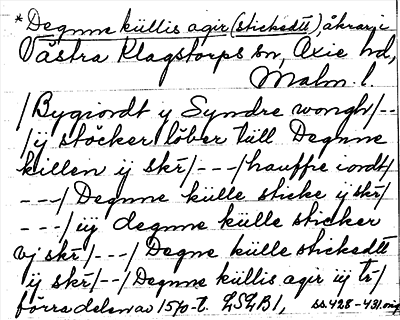 *Degnne küllis agir (stickedt), åkrar, i
Västra Klagstorps sn, Oxie hd,
Malm. l.
/Bygiordt y Syndre wongh/--
/ij stöcker löber till Degnne
killen ij skr̄/---/hauffre iordt/
---/Degnne külle sticke ij skr̄/
---/iij degnne külle sticker
vj skr̄/---/Degne külle stickedt
ij skr̄/--/Degnne küllis agir iij tr̄/
förra delen av 1570-t. LSLB 1, ss. 428-431. orig